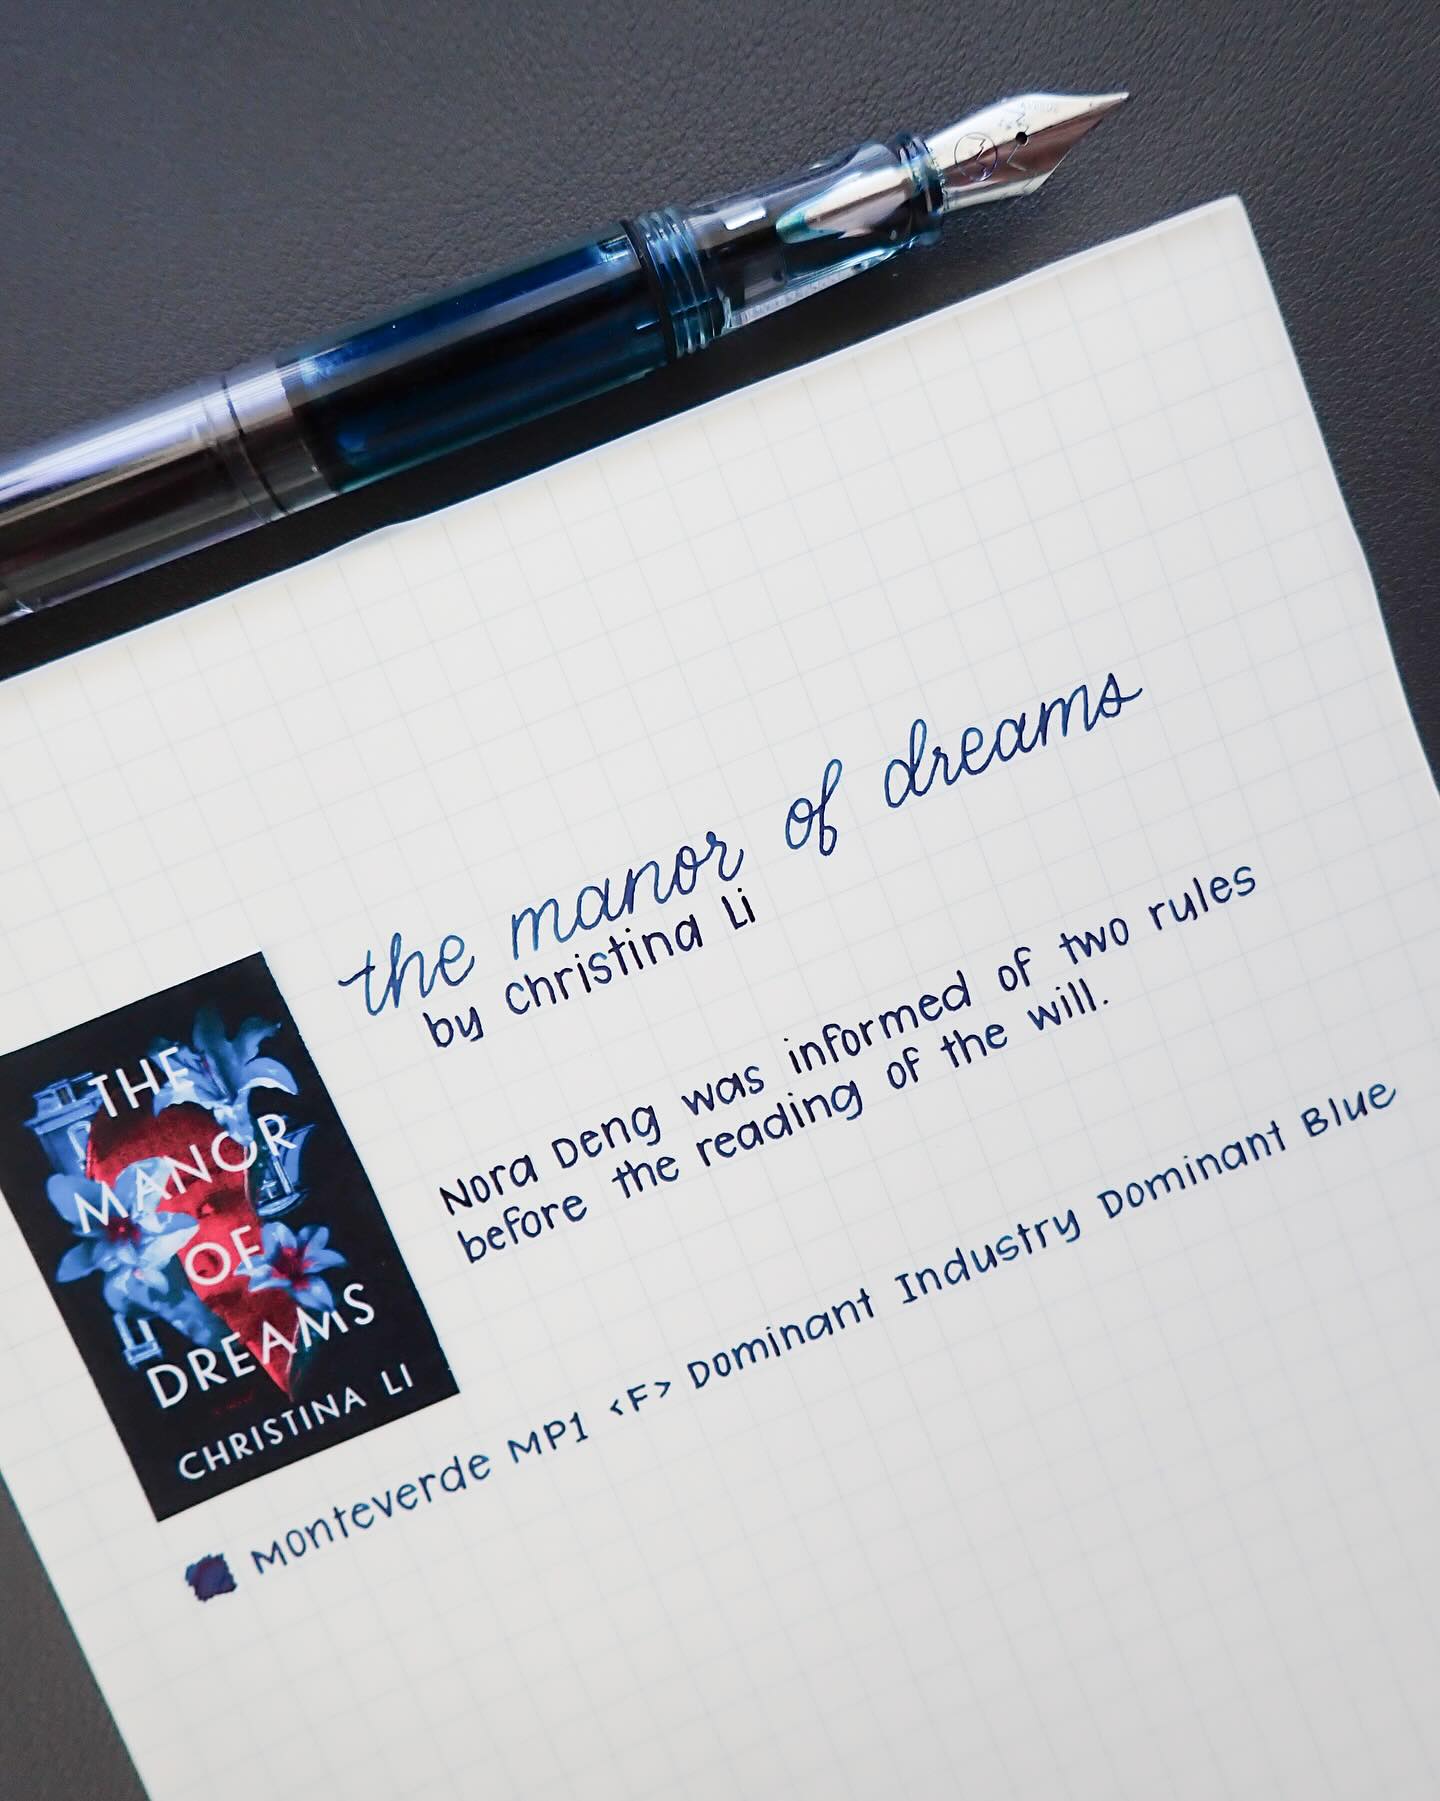 the manor of dreams
by Christina Li
Nora Deng was informed of two rules
before the reading of the will.
THE
MANOR
OF
DREAMS
CHRISTINA LI
Monteverde MP1 <F> Dominant Industry Dominant Blue